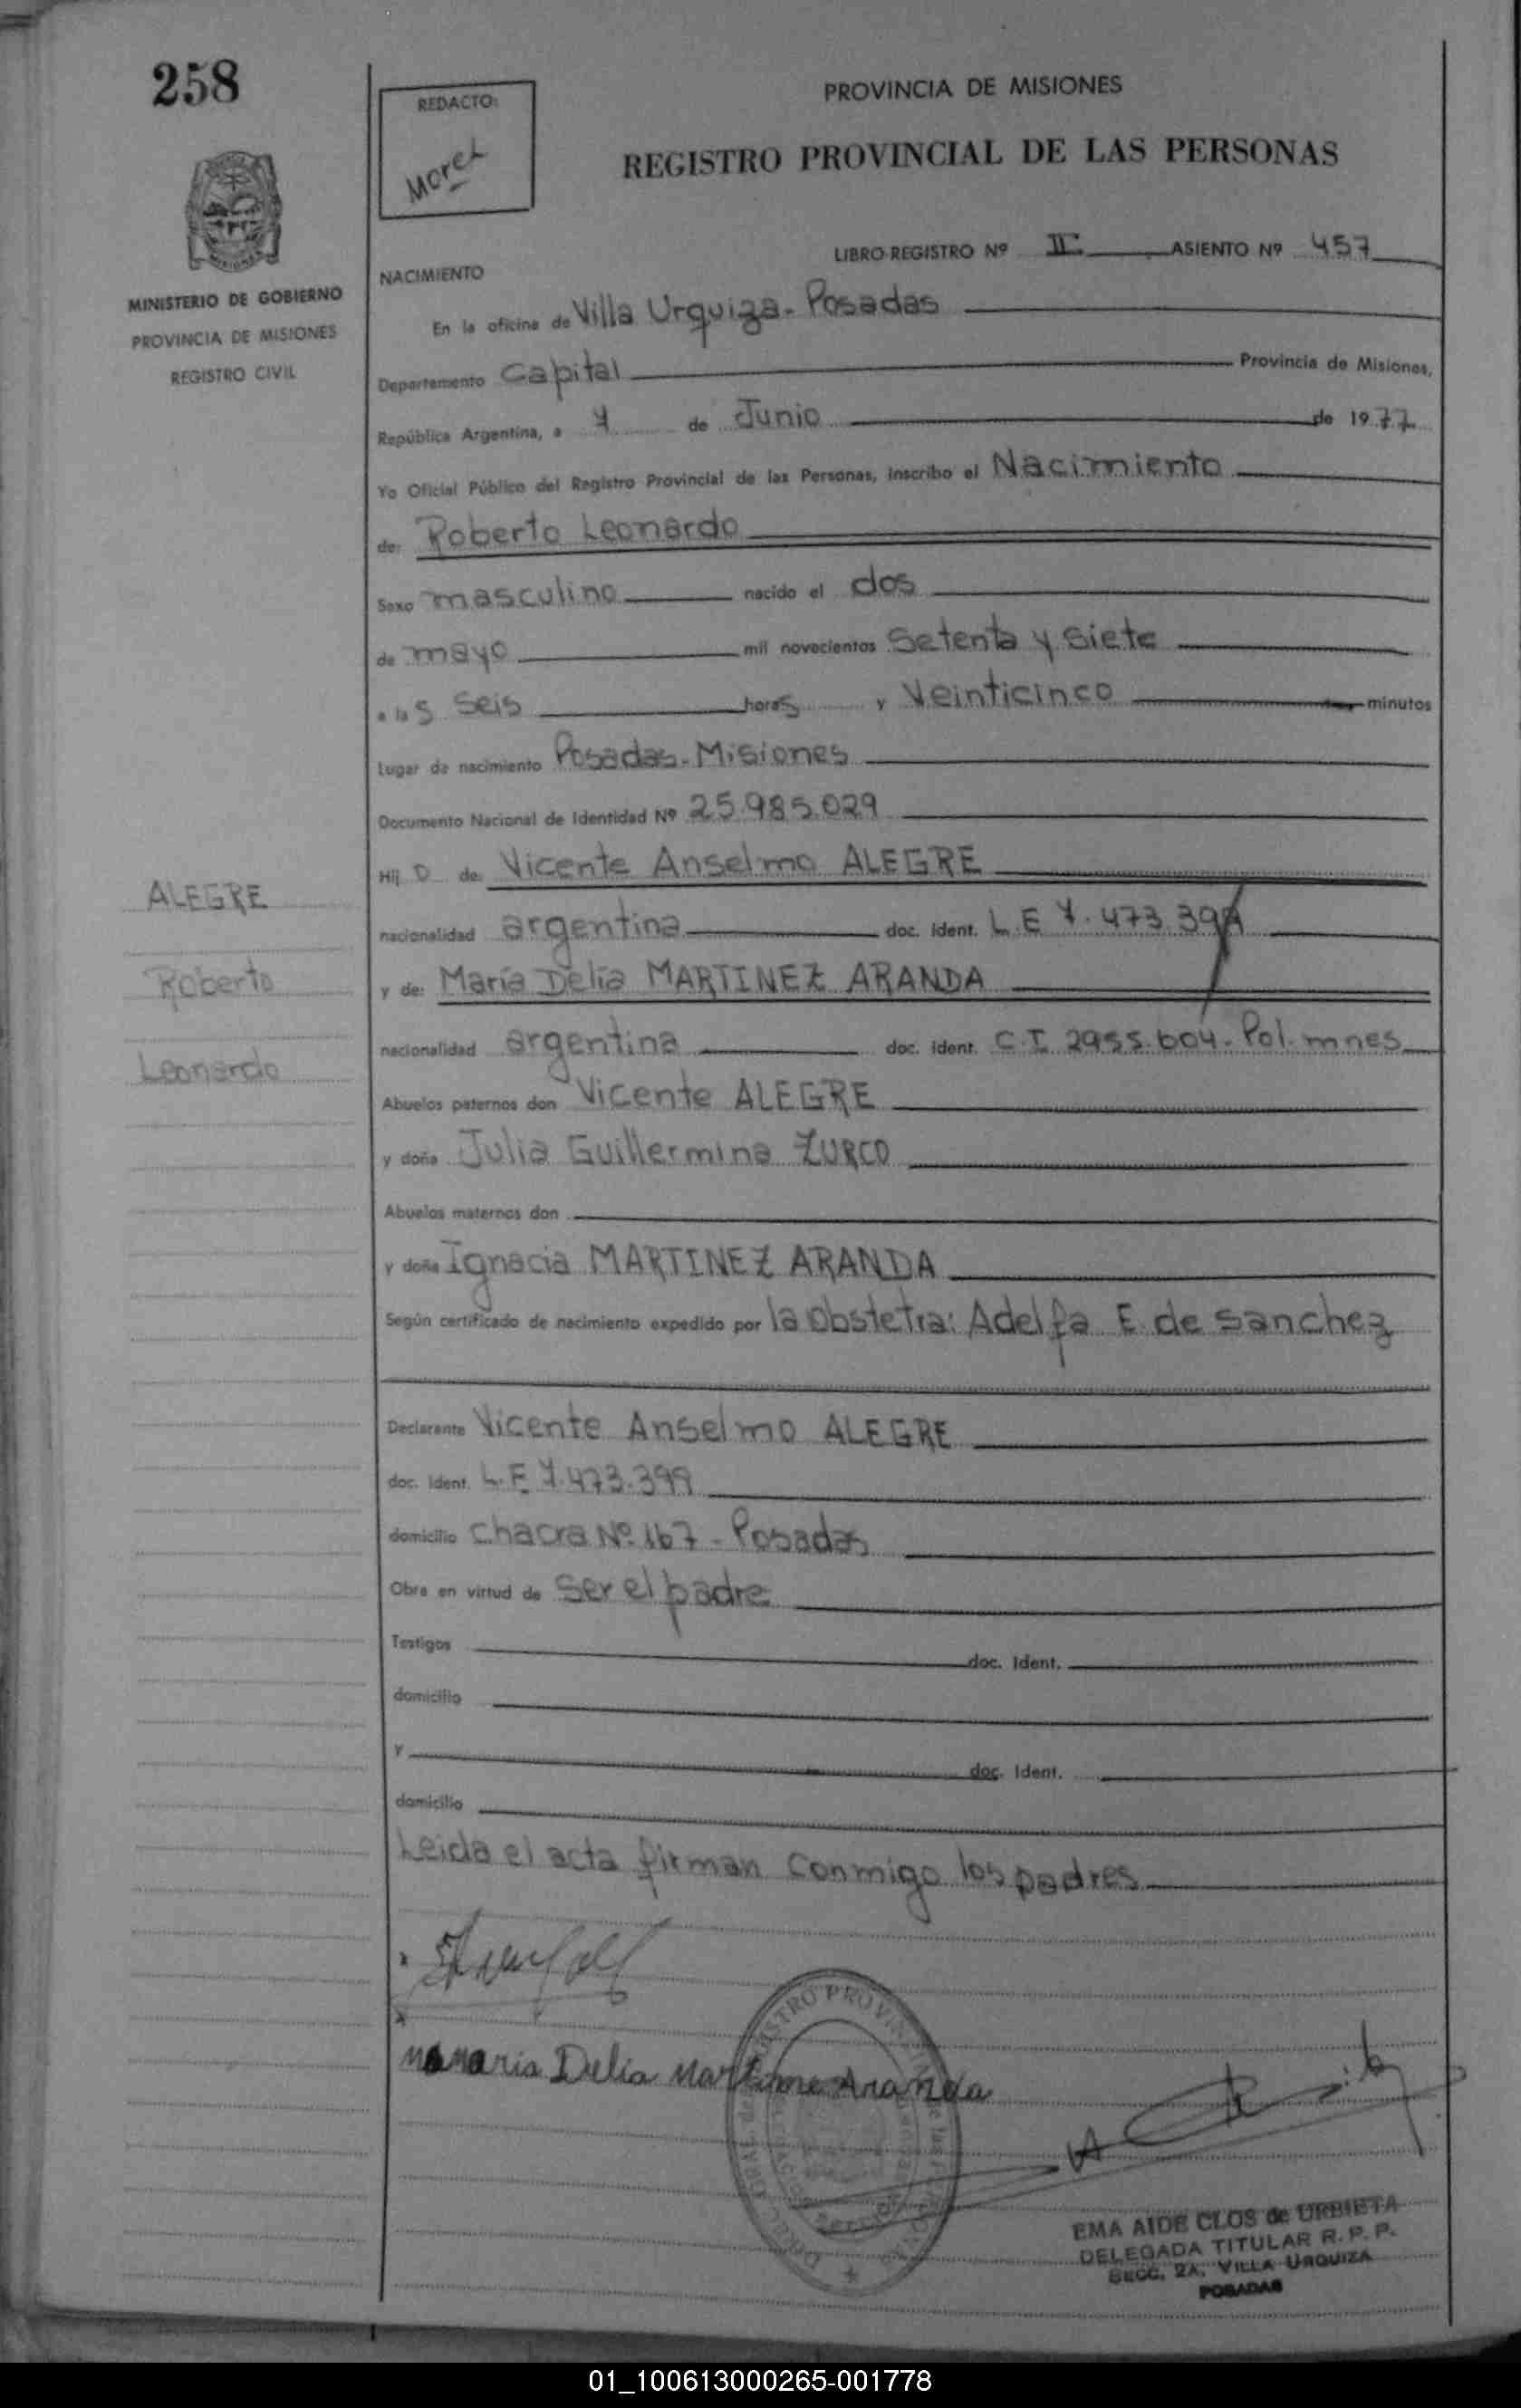 258
REDACTO:
Morel
PROVINCIA DE MISIONES
REGISTRO PROVINCIAL DE LAS PERSONAS
MINISTERIO DE GOBIERNO
PROVINCIA DE MISIONES
REGISTRO CIVIL
LIBRO-REGISTRO Nº II ASIENTO Nº 457
NACIMIENTO
En la oficina de Villa Urquiza - Posadas
Departamento Capital Provincia de Misiones,
República Argentina, a 7 de Junio de 1977
Yo Oficial Público del Registro Provincial de las Personas, inscribo el Nacimiento
de: Roberto Leonardo
Sexo masculino nacido el dos
de mayo mil novecientos Setenta y Siete
a las seis horas y Veinticinco minutos
Lugar de nacimiento Posadas - Misiones
Documento Nacional de Identidad Nº 25.985.029
Hij o de: Vicente Anselmo ALEGRE
nacionalidad argentina doc. ident. L.E 7.473.399
y de: María Delia MARTINEZ ARANDA
nacionalidad argentina doc. ident. C.I. 2955.604 - Pol. mnes
Abuelos paternos don Vicente ALEGRE
y doña Julia Guillermina ZURCO
Abuelos maternos don
y doña Ignacia MARTINEZ ARANDA
Según certificado de nacimiento expedido por la Obstetra: Adelfa E. de Sanchez
Declarante Vicente Anselmo ALEGRE
doc. ident. L.E 7.473.399
domicilio Chacra Nº 167 - Posadas
Obra en virtud de Ser el padre
Testigos doc. ident.
domicilio
y doc. ident.
domicilio
Leida el acta firman conmigo los padres
ALEGRE
Roberto
Leonardo
maria Delia Martine Aranda
EMA AIDE CLOS de URBIETA
DELEGADA TITULAR R. P. P.
SECC. 2A. VILLA URQUIZA
POSADAS
01_100613000265-001778